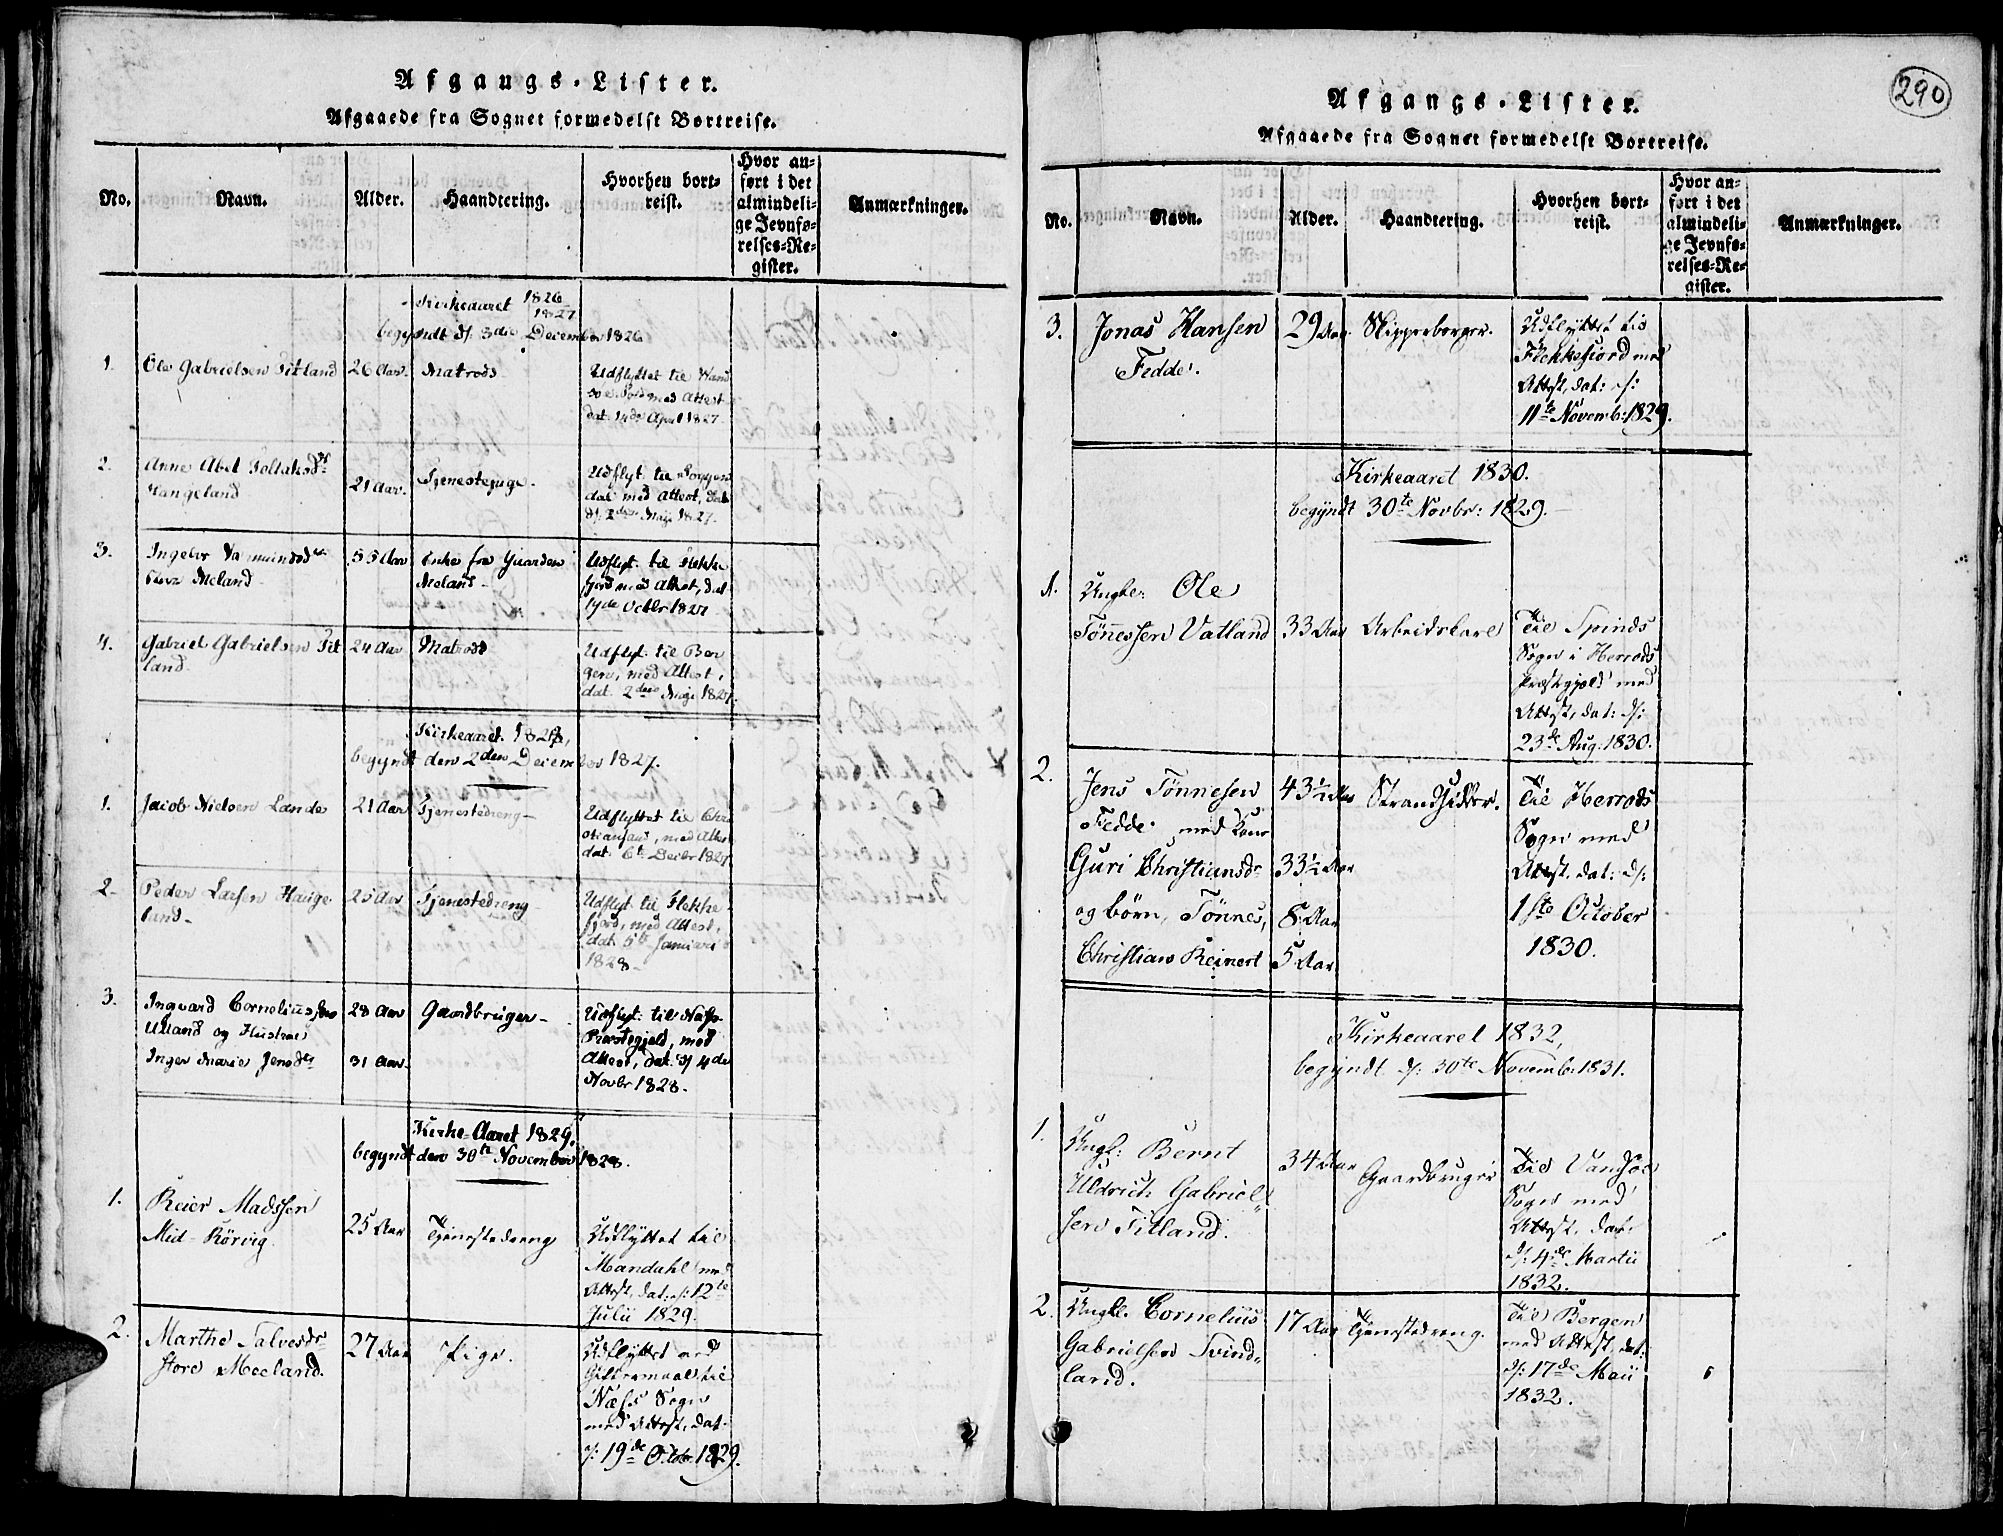 Afgangs-Lister.
Afgaaede fra Sognet formedelst Bortreise.
No. Navn. Alder. Haandtering. Hvorhen bortreist. Hvor anført i det almindelige Jevnførelses-Register. Anmærkninger.
Kirkeaaret 1826
1827
begyndt d/ 3die December 1826
1. Ole Gabrielsen Titland 26 Aar. Matros
Udflyttet til
med Attest
dat. 14de April 1827
2. Anne Abel
Hangeland 21 Aar. Tjenestepige.
Udflyt. til
med Attest, dat
d/ 2den Maji 1827.
3. Ingebr
Meland 55 Aar Enke fra Gaarden
Meland
Udflyt. til Flekke
fjord med Attest, dat
17de Octbr 1827
4. Gabriel Gabrielsen Tit
land 24 Aar Matros
Udflyt. til Ber
gen, med Attest,
dat. 2den Maji 1827.
Kirkeaaret 1828,
begyndt den 2den December 1827.
1. Jacob Nielsen Lande 21 Aar Tjenestedreng
Udflyttet til Chri
stiansand, med Attest
dat. 6te Decbr 1827
2. Peder Larsen Hauge
land 25 Aar Tjenestedreng
Udflyt. til Flekke
fjord, med Attest,
dat. 5te Januari
1828
3. Ingvard Corneliussen
Ulland og Hustrue 28 Aar Gaardbruger
Inger Marie Jensdr 31 Aar.
Udflyt. til Næss
Præstegjeld, med
Attest, dat. d/ 4de
Novbr 1828.
Kirke-Aaret 1829.
begyndt den 30te November 1828.
1. Reier Madssen
Mid-Rörvig 25 Aar Tjenestedreng
Udflyttet til
Mandahl med
Attest, dat: d/: 12te
Julii 1829.
2. Marthe Salvesdr
store Meeland. 27 Aar Pige.
Udflyttet ved
Giftermaal til
Næss Sogn
med Attest, dat.
d/: 19de Octobr. 1829.
290
Afgangs-Lister.
Afgaaede fra Sognet formedelst Bortreise.
No. Navn. Alder. Haandtering. Hvorhen bortreist. Hvor anført i det almindelige Jevnførelses-Register. Anmærkninger.
3. Jonas Hansen
Fedde. 29 Aar. Skipperborger.
Udflyttet til
Flekkefiord med
Attest, dat: d/:
11te Novemb: 1829.
Kirkeaaret 1830.
begyndt 30te Novbr: 1829.
1. Ungk: Ole
Tönessen Vatland 33 Aar Arbeidskarl
Til Spinds
Sogn i Herrods
Præstegjeld med
Attest, dat: d/:
23de Aug: 1830.
2. Jens Tönnesen
Fedde med Kone 43½ Aar Strandsidder.
Guri Christiansdr 33½ Aar
og börn, Tönnes, 8 Aar
Christian Reinert 5 Aar
Til Herrods
Sogn med
Attest, dat: d/:
1ste October
1830.
Kirkeaaret 1832,
begyndt d/: 30te Novemb: 1831.
1. Ungk: Bernt
Uldrich Gabriel-
sen Titland. 34 Aar Gaardbruger
Til Vandsöe
Sogn med
Attest, dat.
d/: 4de Martii
1832.
2. Ungk. Cornelius
Gabrielsen Svind-
land. 17 Aar Tjenestedreng.
Til Bergen
med Attest, dat:
d/: 17de Maii
1832.